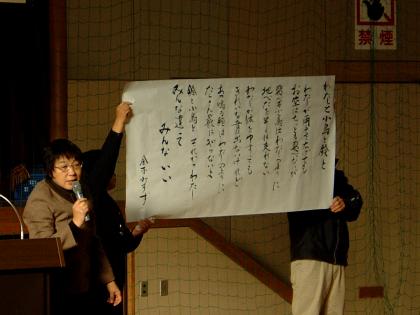 禁煙
わたしと小鳥と鈴と
わたしが両手をひろげても
お空はちっとも飛べないが
飛べる小鳥はわたしのように
地べたを早くは走れない
わたしが体をゆすっても
きれいな音は出ないけれど
あの鳴る鈴はわたしのように
たくさんな歌は知らないよ
鈴と小鳥とそれからわたし
みんな違って
みんないい
金子みすず